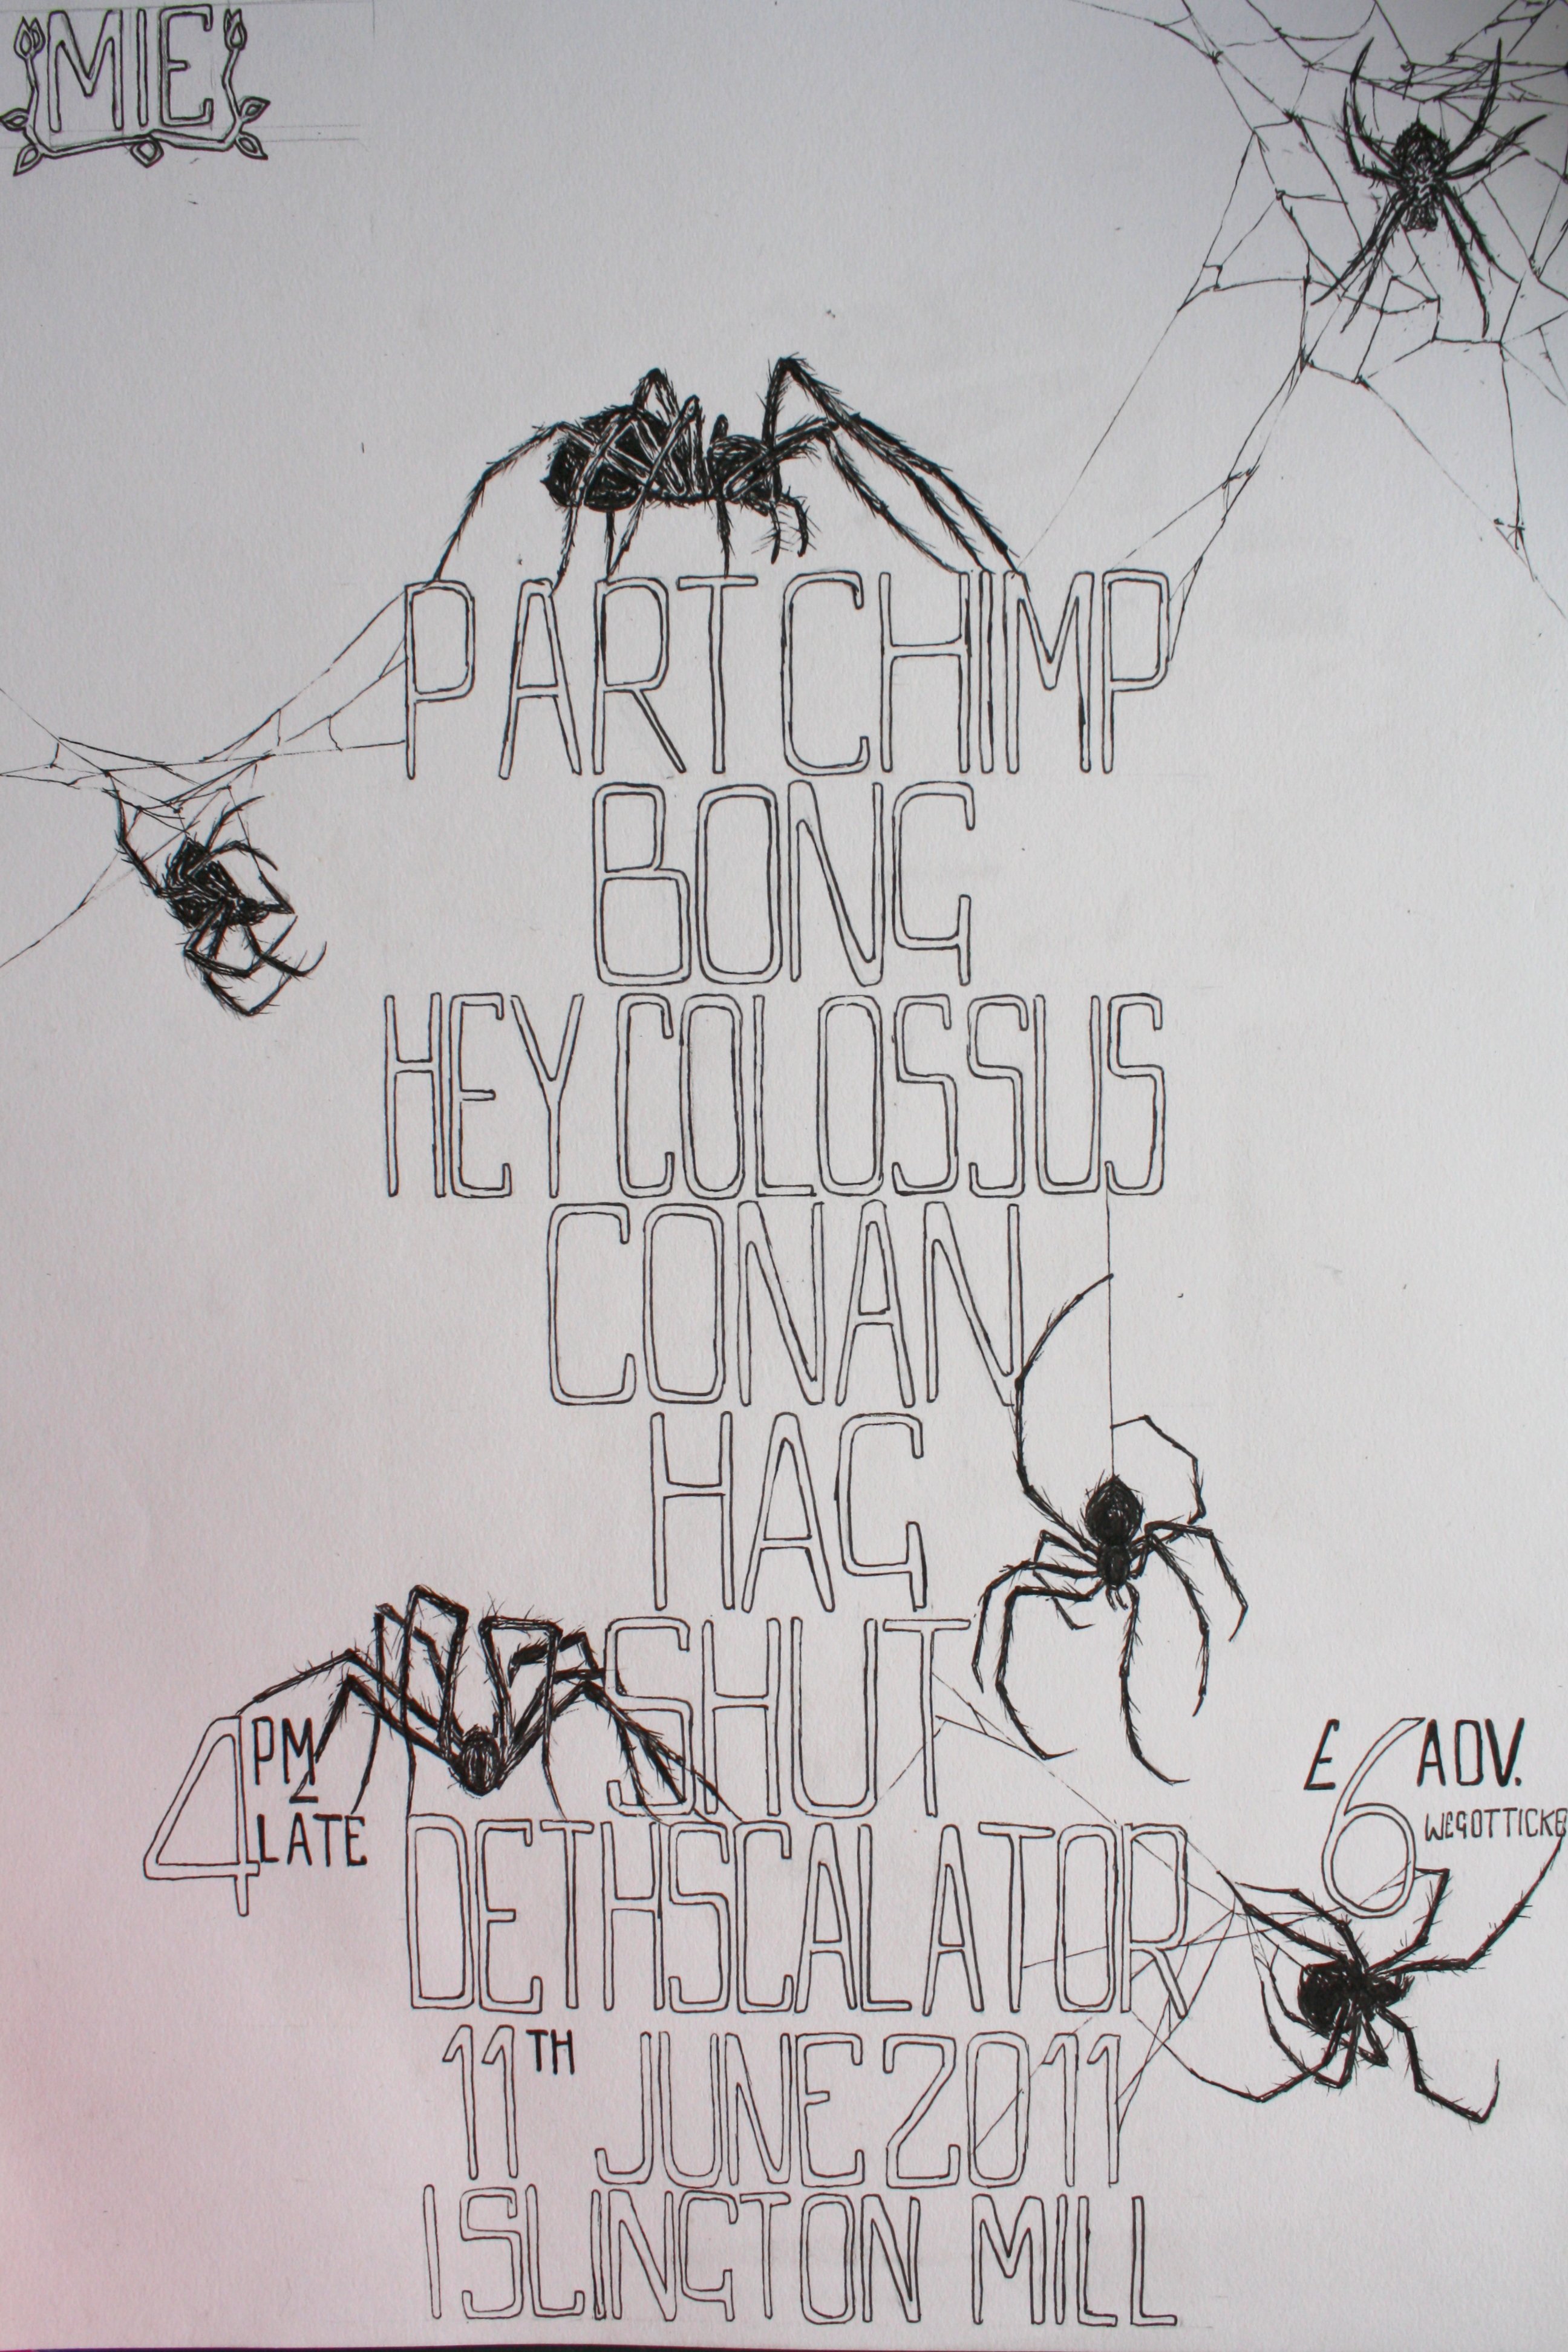 MIE
PART CHIMP
BONG
HEY COLOSSUS
CONAN
HAG
SHUT
4PM 2 LATE
£6 ADV.
WEGOTTICKE
DETHSCALATOR
11TH JUNE 2011
ISLINGTON MILL